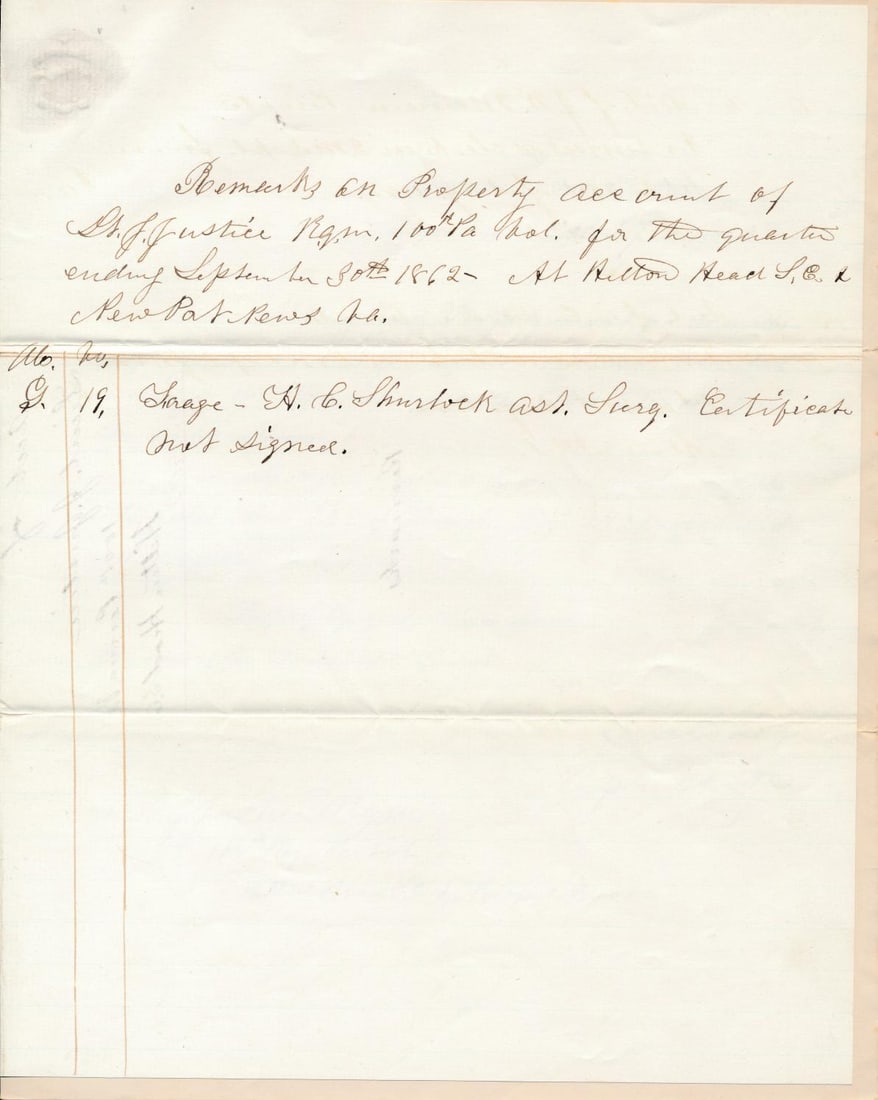 Remarks on Property account of
Lt. J. Justice R.q.m. 100th Pa Vol. for the quarter
ending September 30th 1862 - At Hilton Head S,C. &
New Pot News Va.
Ab. Vo,
G. 19, Forage - H. C. Shurlock ast. Surg. Certificate
not signed.